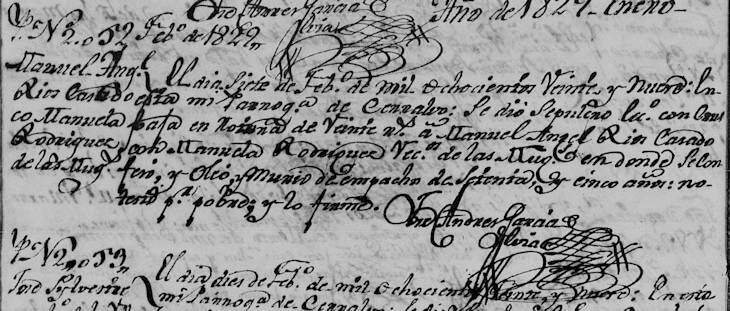 Año de 1829 Enero
Andres Garcia
N. 52 Feb.o de 1829
Manuel Angl
El dia Siete de Feb.o de mil ochocientos Veinte, y Nueve: En
Rios Casado esta mi Parroq.a de Cerralvo: Se dió Sepultura Ec.a con
co Manuela en de Veinte r.s á Manuel Angel Rios Casado
Rodriguez con Manuela Rodriguez Vec.s de las Mug.s en donde Se Con
de las Mug.s fesó, y Oleó, y Murio de empacho de Setenta, y cinco años: no
testó p.r pobre, y lo firmé. Andres Garcia
N. 53
El dia dies de Feb.o de mil ochocientos Veinte, y Nueve: En esta
Jose Sylvestre mi Parroq.a de Cerralvo: